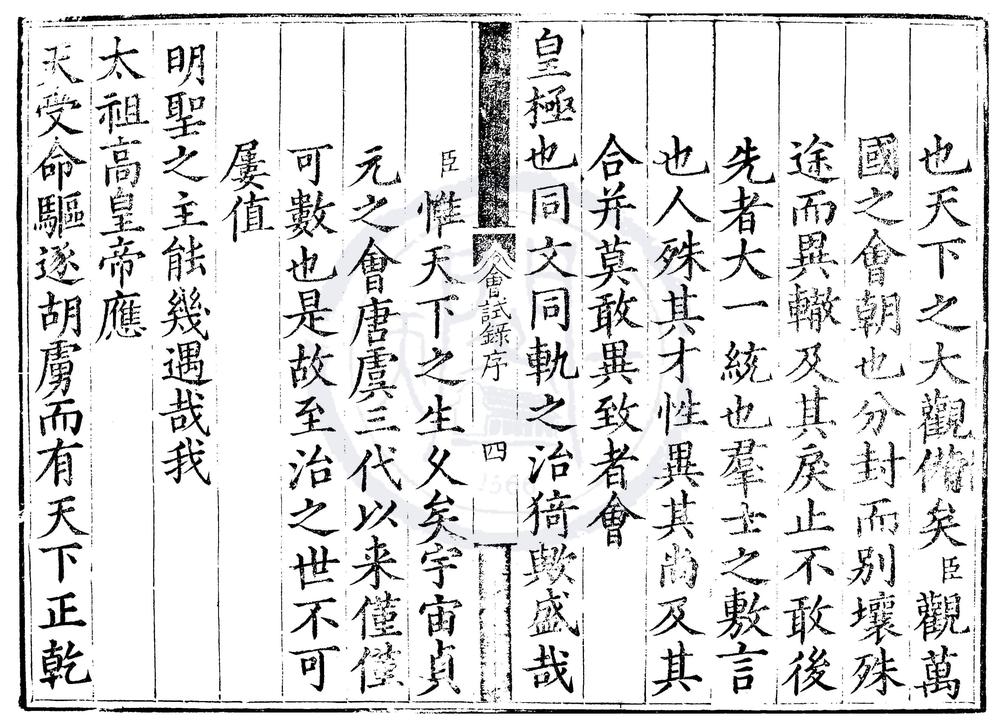 也天下之大觀備矣臣觀萬
國之會朝也分封而别壤殊
途而異轍及其戾止不敢後
先者大一統也羣士之敷言
也人殊其才性異其尚及其
合并莫敢異致者會
皇極也同文同軌之治猗歟盛哉
會試錄序
四
臣惟天下之生久矣宇宙貞
元之會唐虞三代以来僅僅
可數也是故至治之世不可
屢值
明聖之主能幾遇哉我
太祖高皇帝應
天受命驅逐胡虜而有天下正乾